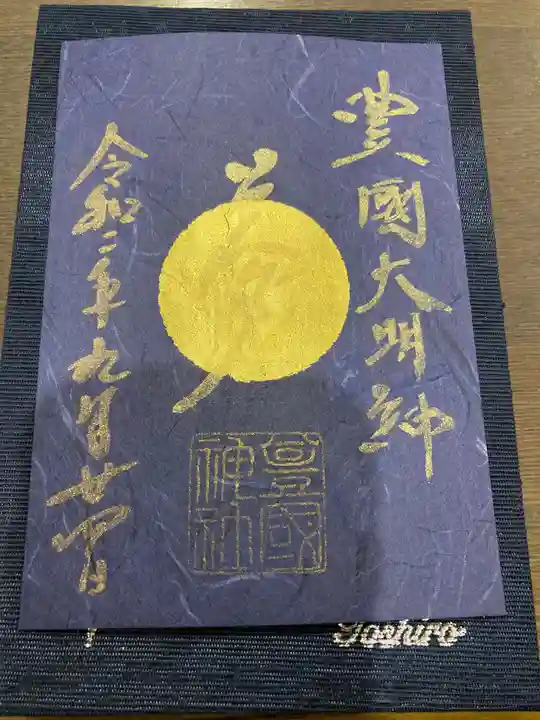 豐國大明神
豐國神社
令和二年九月廿四日
Toshiro